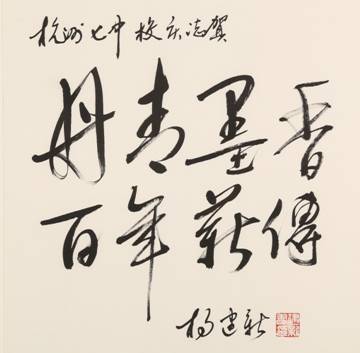 杭州七中校庆志贺
丹青墨香
百年薪傳
杨建新